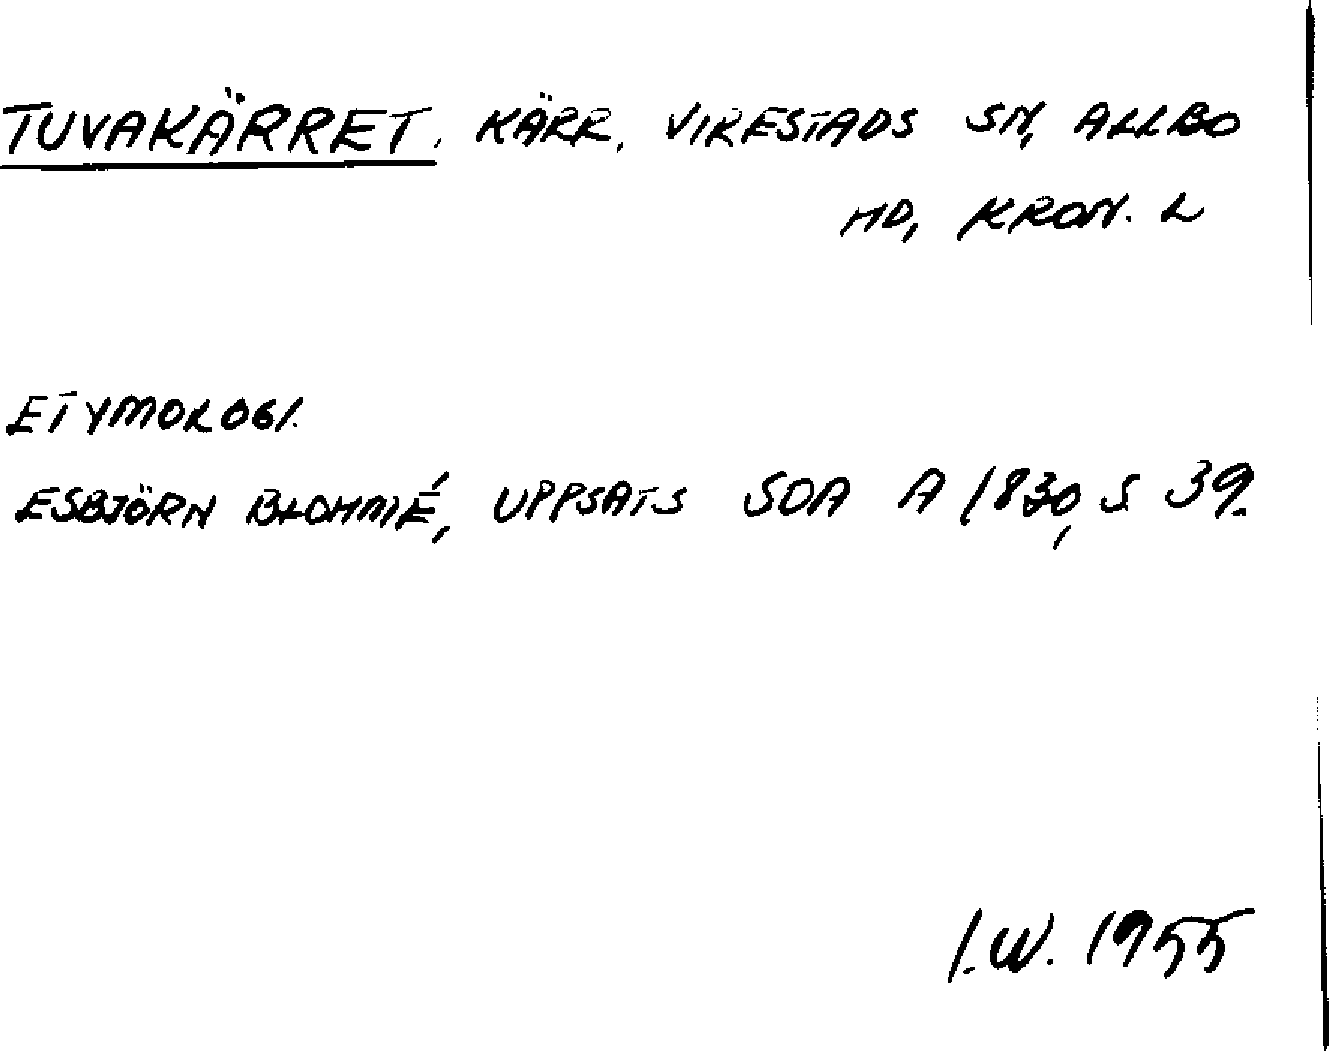 TUVAKÄRRET. KÄRR. VIRESTADS SN, ALLBO
HD, KRON. L
ETYMOLOGI.
ESBJÖRN BLOHMÉ, UPPSATS SOA A 1830, S 39.
I.W. 1955